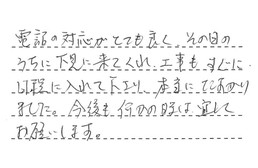 電話の対応がとても良く、その日の
うちに下見に来てくれ、工事もすぐに
日程に入れて下さり、本当にたすかり
ました。今後も何かの時は宜しく
お願いします。